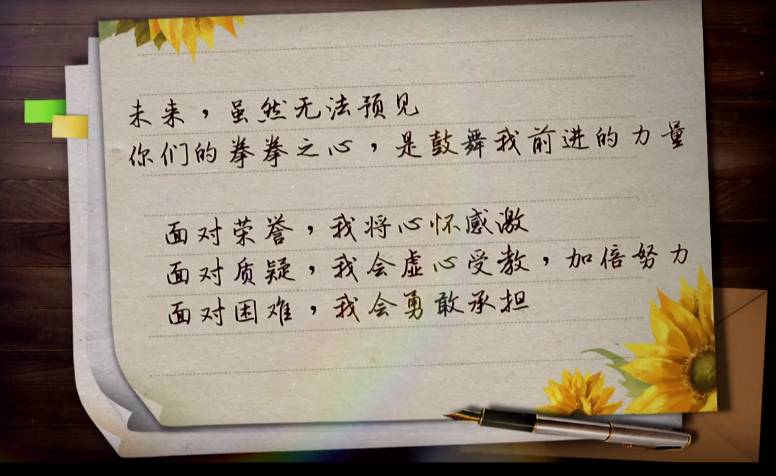 未来，虽然无法预见
你们的拳拳之心，是鼓舞我前进的力量
面对荣誉，我将心怀感激
面对质疑，我会虚心受教，加倍努力
面对困难，我会勇敢承担